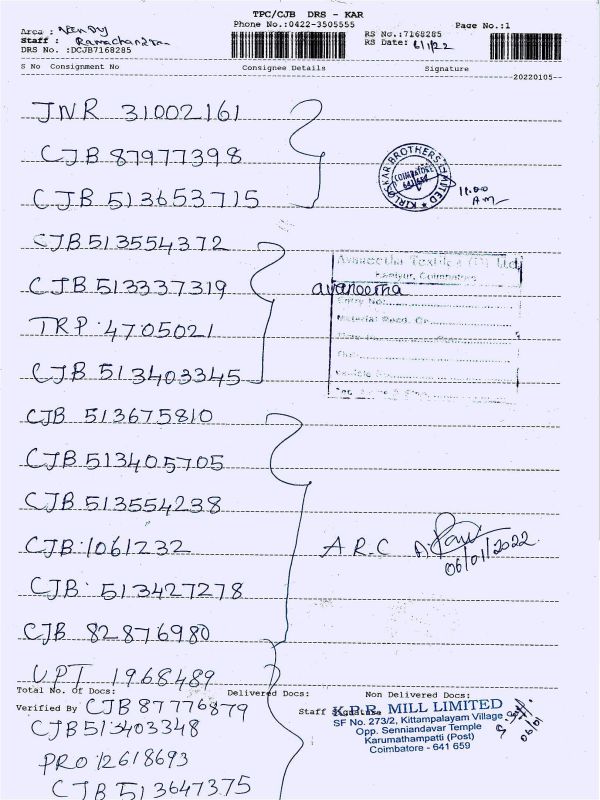 TPC/CJB DRS - KAR
Phone No.:0422-3505555
Page No.:1
Area :
Staff : Ramachandran
DRS No. :DCJB7168285
RS No.:7168285
RS Date: 6/1/22
S No Consignment No Consignee Details Signature
20220105
JNR 31002161
CJB 87977398
KIRLOSKAR BROTHERS LIMITED
COIMBATORE
641
11.00
A.M
CJB 513653715
CJB 513554372
Avaneetha Textiles (P) Ltd,
Kaniyur, Coimbatore
CJB 513337319
avaneetha
Entry No:
Material Recd. On
TRP 4705021
CJB 513403345
CJB 513675810
CJB 513405705
CJB 513554238
CJB 1061232
A.R.C
06/01/2022
CJB 513427278
CJB 82876980
UPT 1968489
Total No. Of Docs: Delivered Docs: Non Delivered Docs:
Verified By CJB 87776879
Staff Signature
K.P.R. MILL LIMITED
SF No. 273/2, Kittampalayam Village
Opp. Senniandavar Temple
Karumathampatti (Post)
Coimbatore - 641 659
06/01
CJB 513403348
PRO 12618693
CJB 513647375